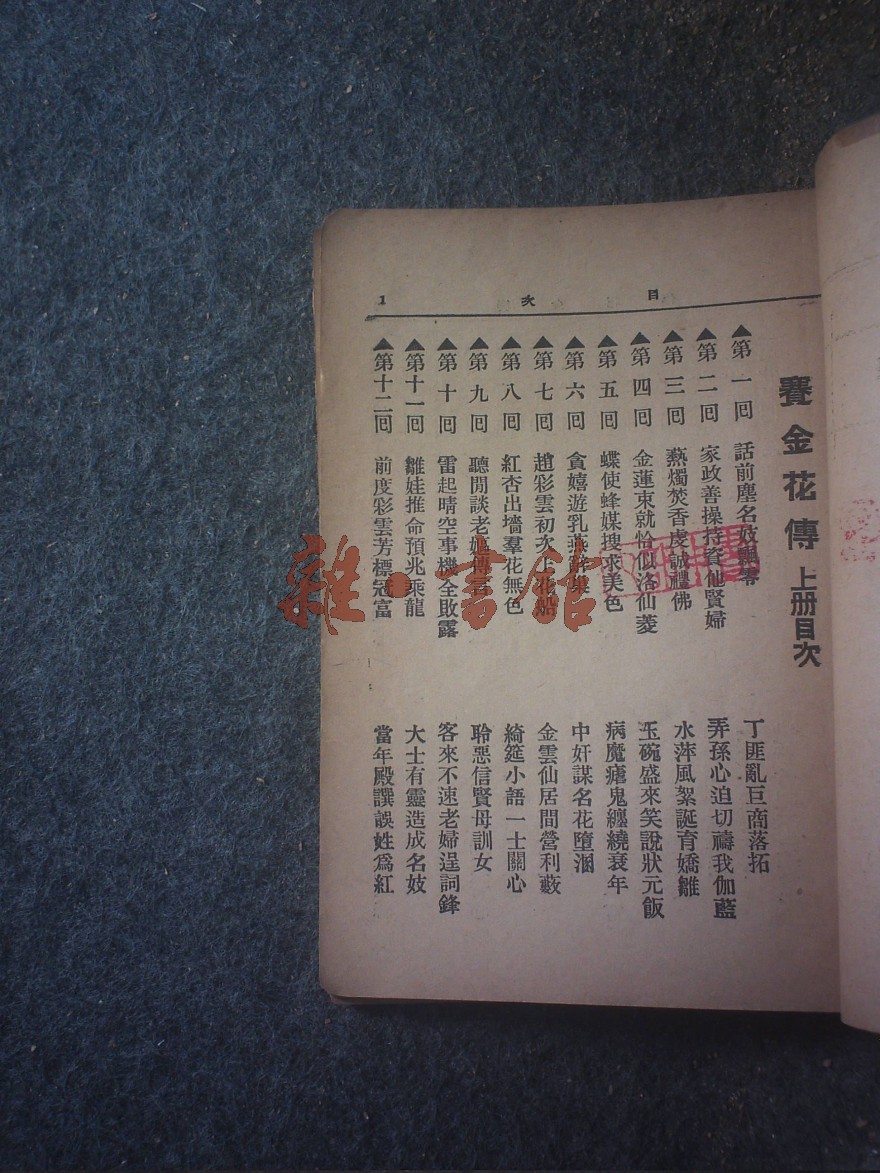 目次
1
賽金花傳 上册目次
▲第一回 話前塵名妓飄零 丁匪亂巨商落拓
▲第二回 家政善操持賢婦 弄孫心迫切禱我伽藍
▲第三回 熱燭焚香虔誠禮佛 水萍風絮誕育嬌雛
▲第四回 金蓮束就恰似洛仙菱 玉碗盛來笑說狀元飯
▲第五回 蝶使蜂媒搜求美色 病魔瘧鬼纏繞衰年
▲第六回 貪嬉遊乳燕 中奸謀名花墮溷
▲第七回 趙彩雲初次上花船 金雲仙居間營利藪
▲第八回 紅杏出墻羣花無色 綺筵小語一士關心
▲第九回 聽閒談老嫗傳言 聆惡信賢母訓女
▲第十回 雷起晴空事機全敗露 客來不速老婦逞詞鋒
▲第十一回 雛娃推命預兆乘龍 大士有靈造成名妓
▲第十二回 前度彩雲芳標冠富 當年殿譔誤姓爲紅
雜·書館